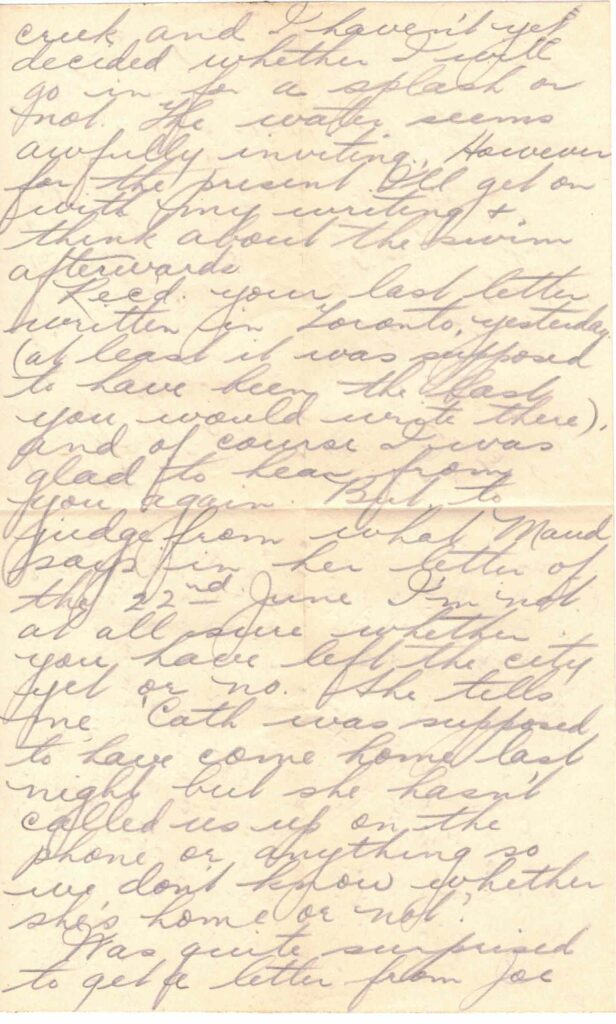 creek and I haven't yet
decided whether I will
go in for a splash or
not. The water seems
awfully inviting. However
for the present I'll get on
with my writing &
think about the swim
afterwards
Rec'd. your last letter
written in Toronto, yesterday
(at least it was supposed
to have been the last
you would wrote there),
and of course I was
glad to hear from
you again. But to
judge from what Maud
says in her letter of
the 22nd June I'm not
at all sure whether
you have left the city
yet or no. She tells
me "Cath was supposed
to have come home last
night but she hasn't
called us up on the
phone or anything so
we don't know whether
she's home or not."
Was quite surprised
to get a letter from Joe